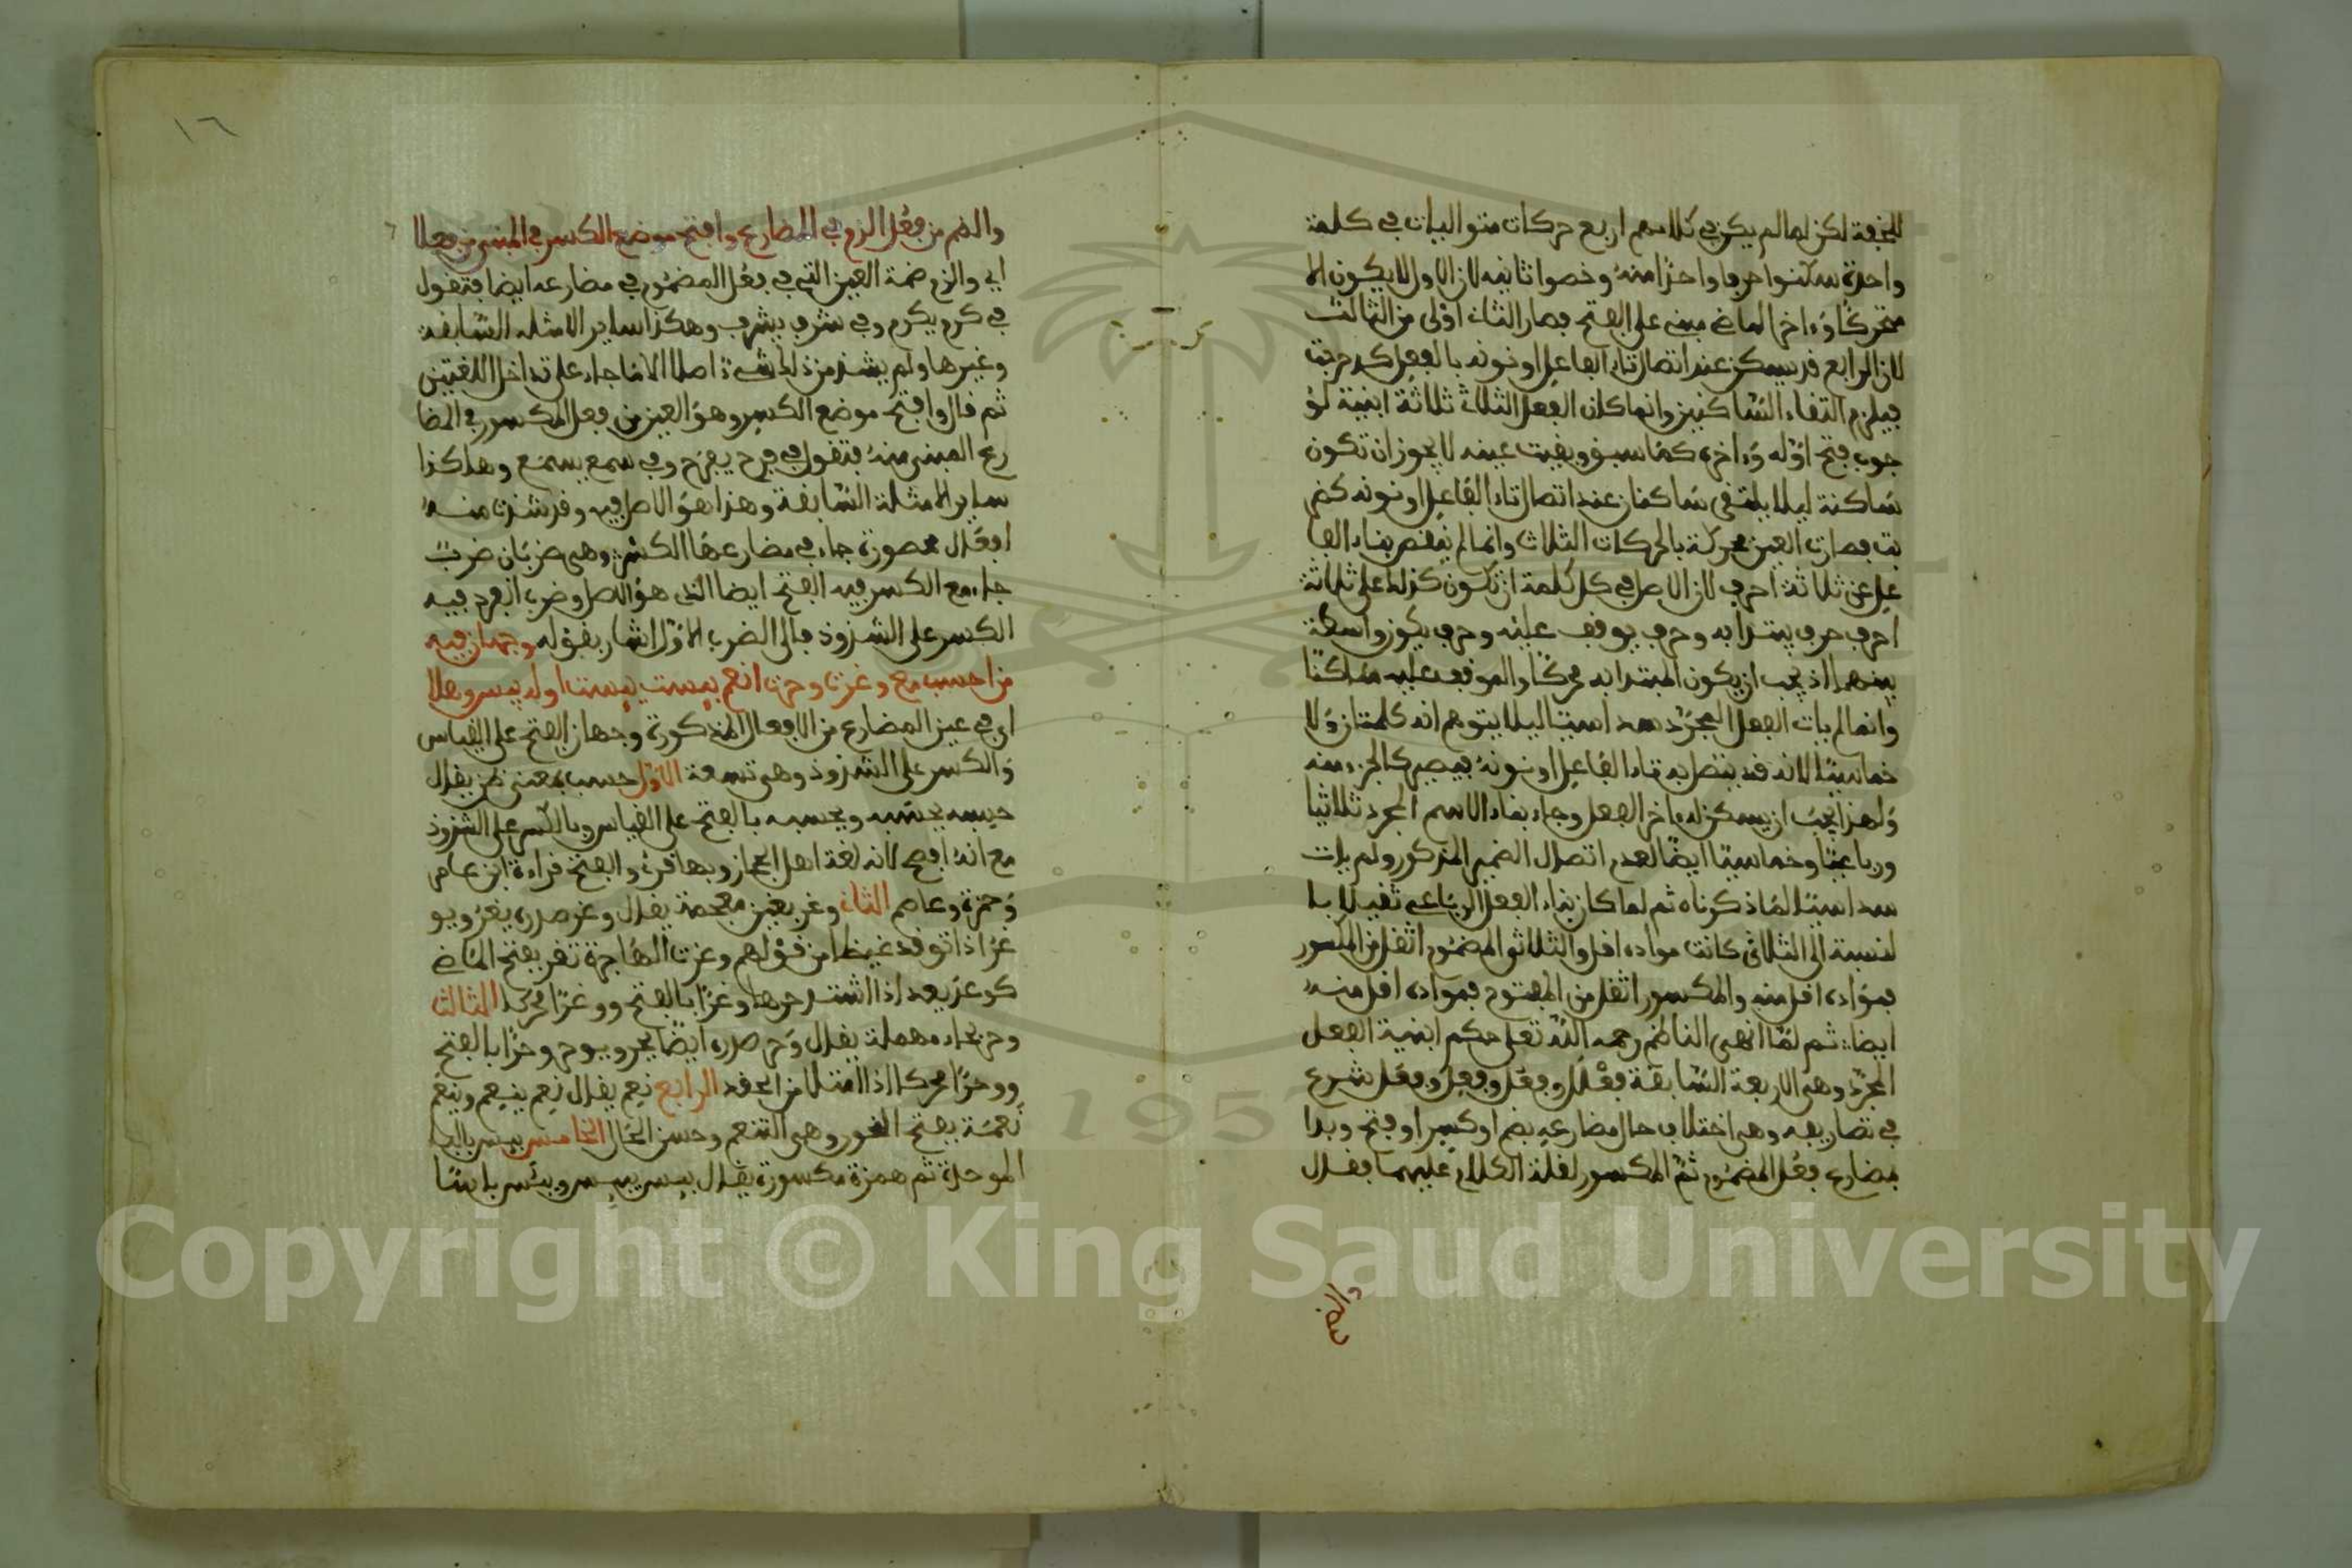 للخفة لكن لما لم يكن في كلامهم اربع حركات متواليات في كلمة
واحدة سكنوا حرفا واحدا منه وخصوا ثانيه لان الاول لا يكون الا
متحركا وءاخر الماضي مبني على الفتح فصار الثاني اولى من الثالث
لان الرابع قد يسكن عند اتصال تاء الفاعل او نونه بالفعل كدحرجت
فيلزم التقاء الساكنين وانما كان الفعل الثلاث ثلاثة ابنية لو
جوب فتح اوله وءاخره كما سبق وبقيت عينه لا يجوز ان تكون
ساكنة ليلا يلتقي ساكنان عند اتصال تاء الفاعل او نونه كضر
بت فصارت العين محركة بالحركات الثلاث وانما لم ينقص بناء الفا
عل عن ثلاثة احرف لان الاصل في كل كلمة ان تكون كذلك على ثلاثة
احرف حرف يبتدا به وحرف يوقف عليه وحرف يكون واسطة
بينهما اذ يجب ان يكون المبتدا به محركا والموقوف عليه ساكنا
وانما لم يات الفعل المجرد سداسيا ليلا يتوهم انه كلمتان ولا
خماسيا لانه قد يتصل به تاء الفاعل او نونه فيصير كالجزء منه
ولهذا يجب ان يسكن له ءاخر الفعل وجاء بناء الاسم المجرد ثلاثيا
ورباعيا وخماسيا ايضا لعدم اتصال الضمير المذكور ولم يات
سداسيا لما ذكرناه ثم لما كان بناء الفعل الرباعي ثقيلا با
لنسبة الى الثلاثي كانت مواده اقل والثلاثي المضموم اثقل من المكسور
فمواده اقل منه والمكسور اثقل من المفتوح فمواده اقل منه
ايضا ثم لما انهى الناظم رحمه الله تعلى حكم ابنية الفعل
المجرد وهي الاربعة السابقة فعلل وفعل وفعل وفعل شرع
في تصاريفه وهي اختلاف حال مضارعه بضم او كسر او فتح وبدا
بمضارع فعل المضموم ثم المكسور لقلة الكلام عليهما فقال
١٦
والضم من فعل الزم في المضارع وافتح موضع الكسر في المبني من فعلا
اي والزم ضمة العين التي في فعل المضموم في مضارعه ايضا فتقول
في كرم يكرم وفي شرف يشرف وهكذا ساير الامثلة السابقة
وغيرها ولم يشذ من ذلك شيء اصلا الا ما جاء على تداخل اللغتين
ثم قال وافتح موضع الكسر وهو العين من فعل المكسور في المضا
رع المبني منه فتقول في فرح يفرح وفي سمع يسمع وهكذا
ساير الامثلة السابقة وهذا هو الاصل فيه وقد شذت منه
افعال محصورة جاء في مضارعها الكسر وهي ضربان ضرب
جاء مع الكسر فيه الفتح ايضا الذي هو الاصل وضرب انفرد فيه
الكسر على الشذوذ فالى الضرب الاول اشار بقوله وجهان فيه
من احسب مع وغرت وحرت انعم بيست يئست اوله يبس وهلا
اي في عين المضارع من الافعال المذكورة وجهان الفتح على القياس
والكسر على الشذوذ وهي تسعة الاول حسب بمعنى ظن يقال
حسبه يحسبه ويحسبه بالفتح على القياس وبالكسر على الشذوذ
مع انه افصح لانه لغة اهل الحجاز وبها قرئ والفتح قراءة ابن عامر
وحمزة وعاصم الثاني وغر بغين معجمة يقال وغر صدره يغر ويو
غر اذا توقد غيظا من قولهم وغرت الهاجرة تغر بفتح الماضي
كوعد يعد اذا اشتد حرها وغرا بالفتح ووغرا محركا الثالث
وحر بحاء مهملة يقال وحر صدره ايضا يحر ويوحر وحرا بالفتح
ووحرا محركا اذا امتلا من الحقد الرابع نعم يقال نعم ينعم وينعم
نعمة بفتح النون وهي التنعم وحسن الحال الخامس بيس بالبا
الموحدة ثم همزة مكسورة يقال بيس يبيس ويبئس باسا